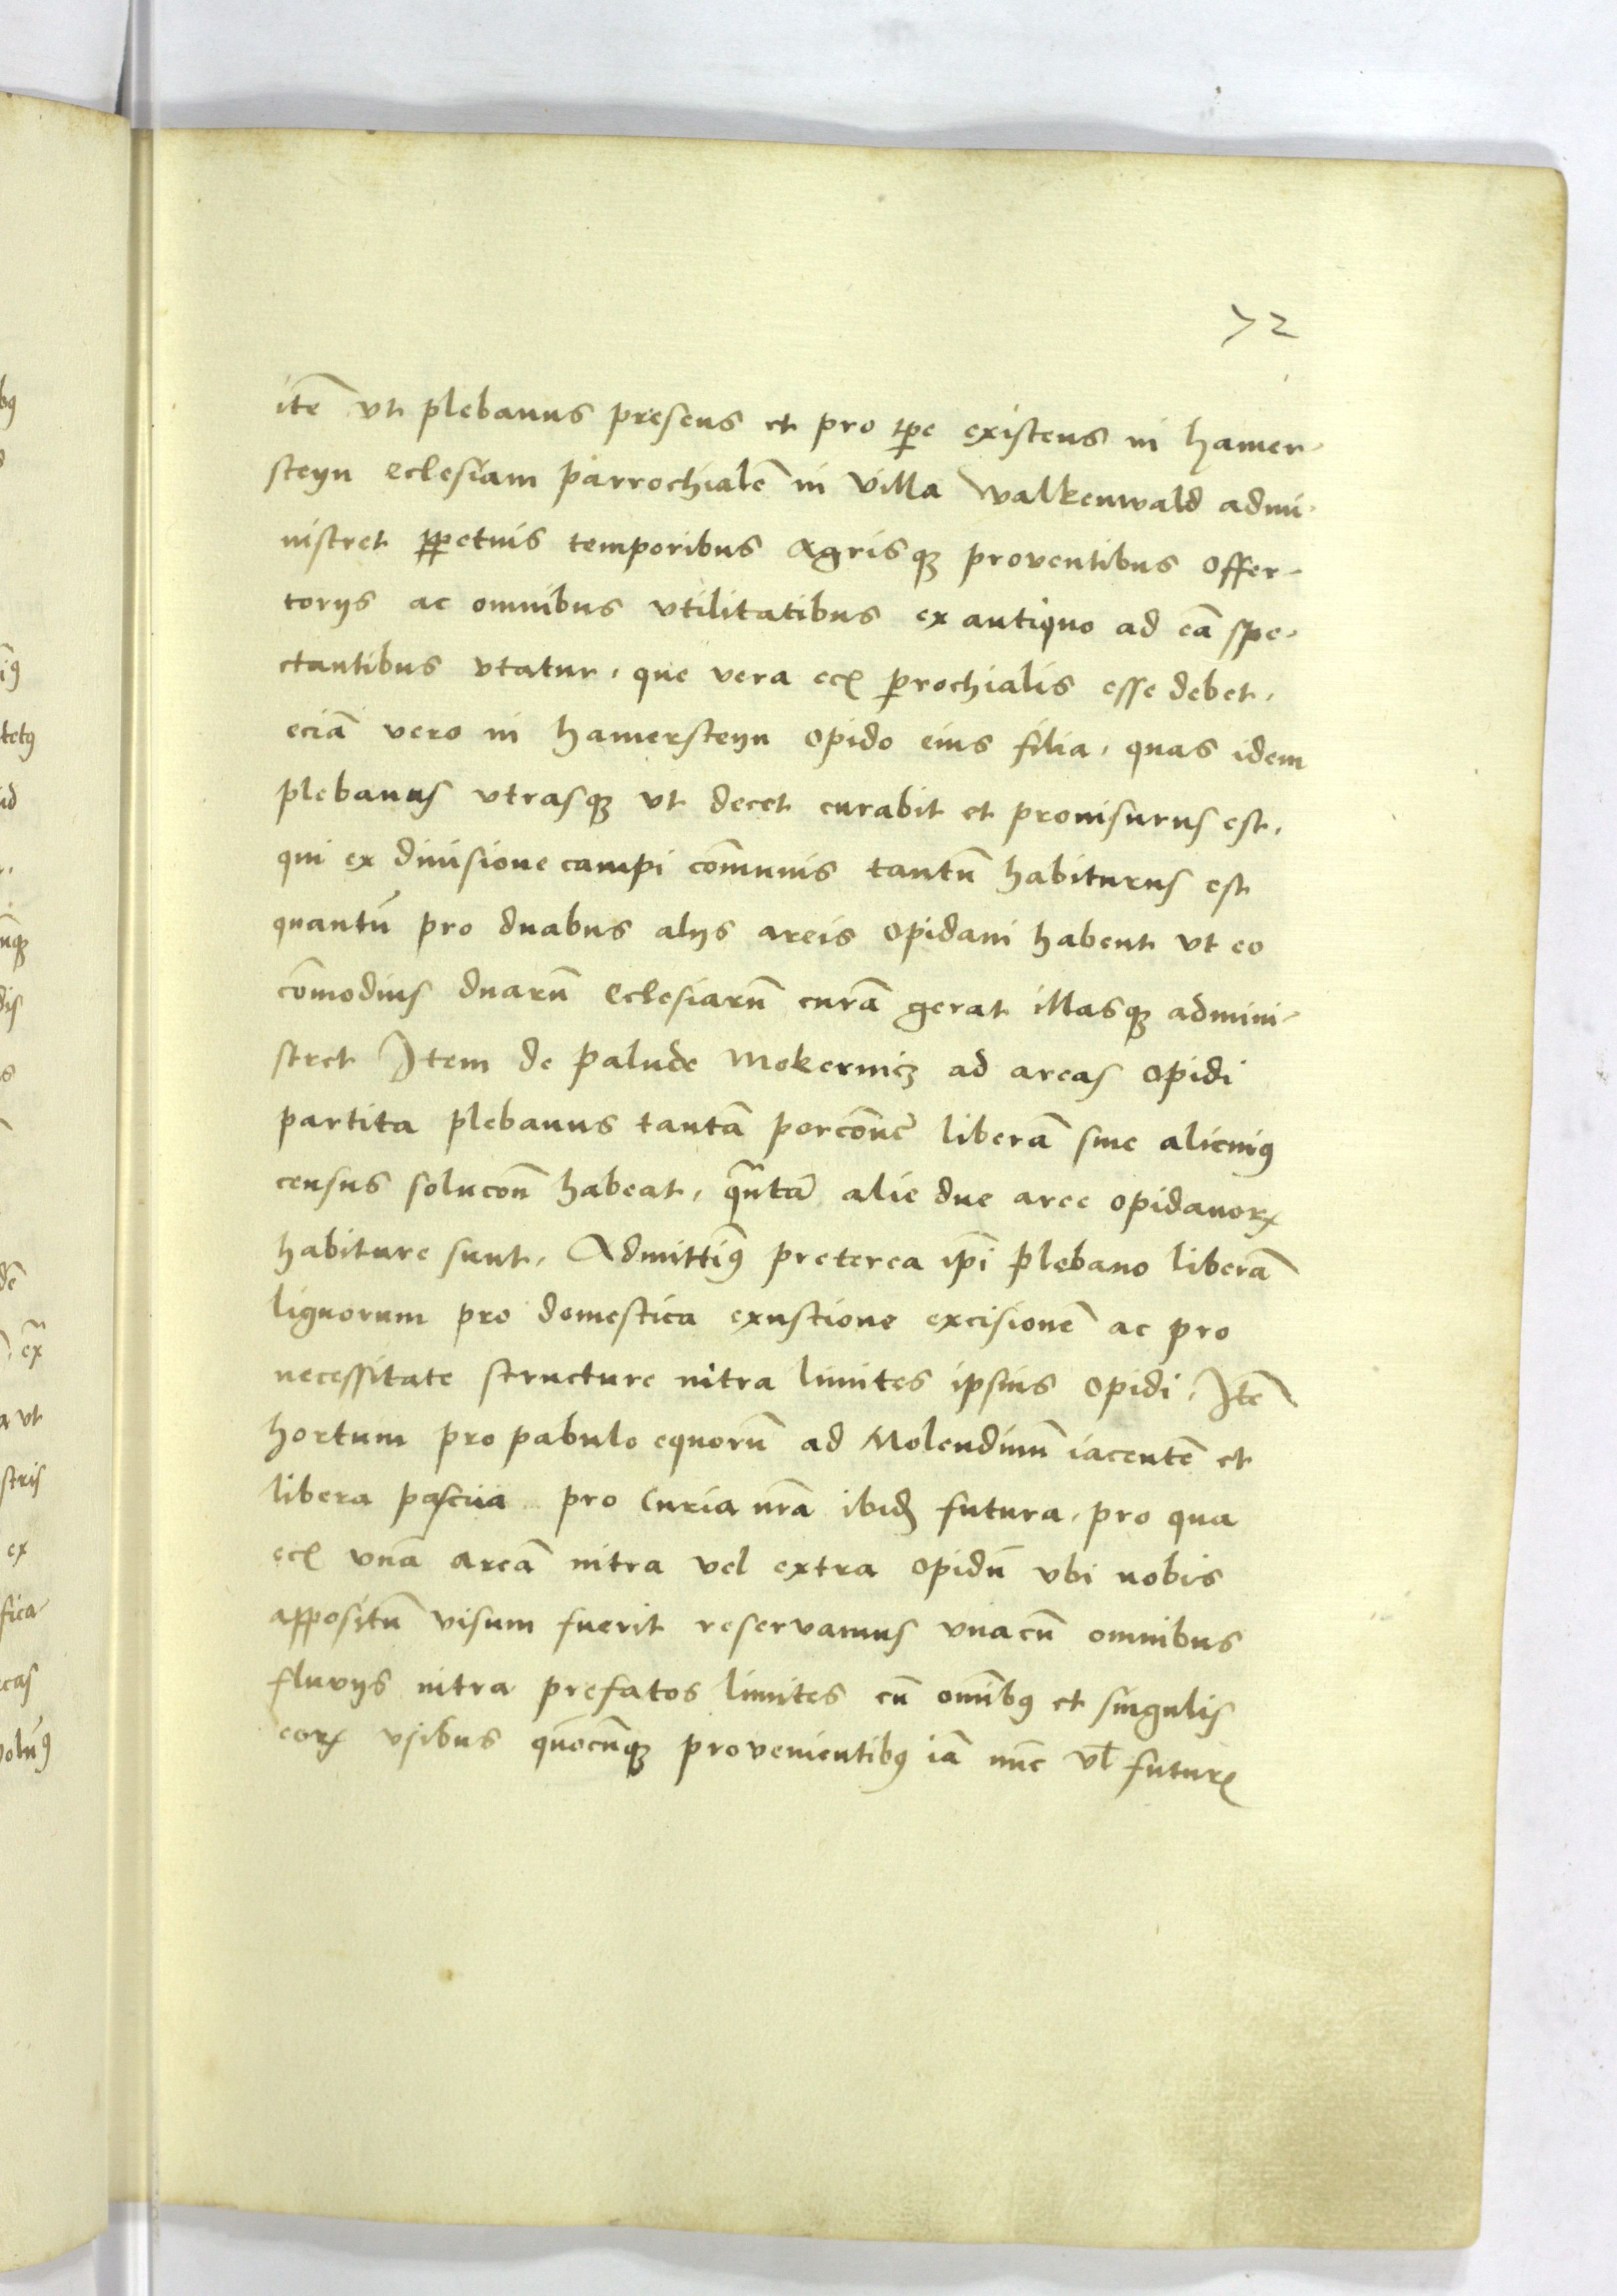 72
itē vt plebanus presens et pro tp̄e existens in hamer-
steyn eclesiam parrochialē in villa walkenwald admi-
nistret ꝑpetuis temporibus Agrisqꝫ proventibus offer-
torijs ac omnibus vtilitatibus ex antiquo ad eā spe-
ctantibus vtatur, que vera ecĺ ꝑrochialis esse debet,
eciā vero in hamersteyn opido eius filia, quas idem
plebanus vtrasqꝫ vt decet curabit et provisurus est,
qui ex divisione campi cōmunis tantū habiturus est
quantū pro duabus alijs areis opidani habent vt eo
cōmodius duarū Eclesiarū curā gerat illasqꝫ admini-
stret Item de palude Mokernicz ad areas opidi
partita plebanus tantā porcōnē liberā sine alicuiꝰ
census solucōn̄ habeat, qn̄tā alie due aree opidanoꝝ
habiture sunt, Admittimꝰ preterea ip̄i plebano liberā
lignorum pro domestica exustione excisionē ac pro
necessitate structure intra limites ipsius opidi, Itē
hortum pro pabulo equorū ad Molendinū iacentē et
libera pascua pro Curia nr̄a ibidꝫ futura, pro qua
ecĺ vnā areā intra vel extra opidū vbi nobis
appositū visum fuerit reservamus vnacū omnibus
fluvijs intra prefatos limites cū omībꝰ et singulis
eoꝝ vsibus quōcūqꝫ provenientibꝰ iā nūc vł futuꝝ